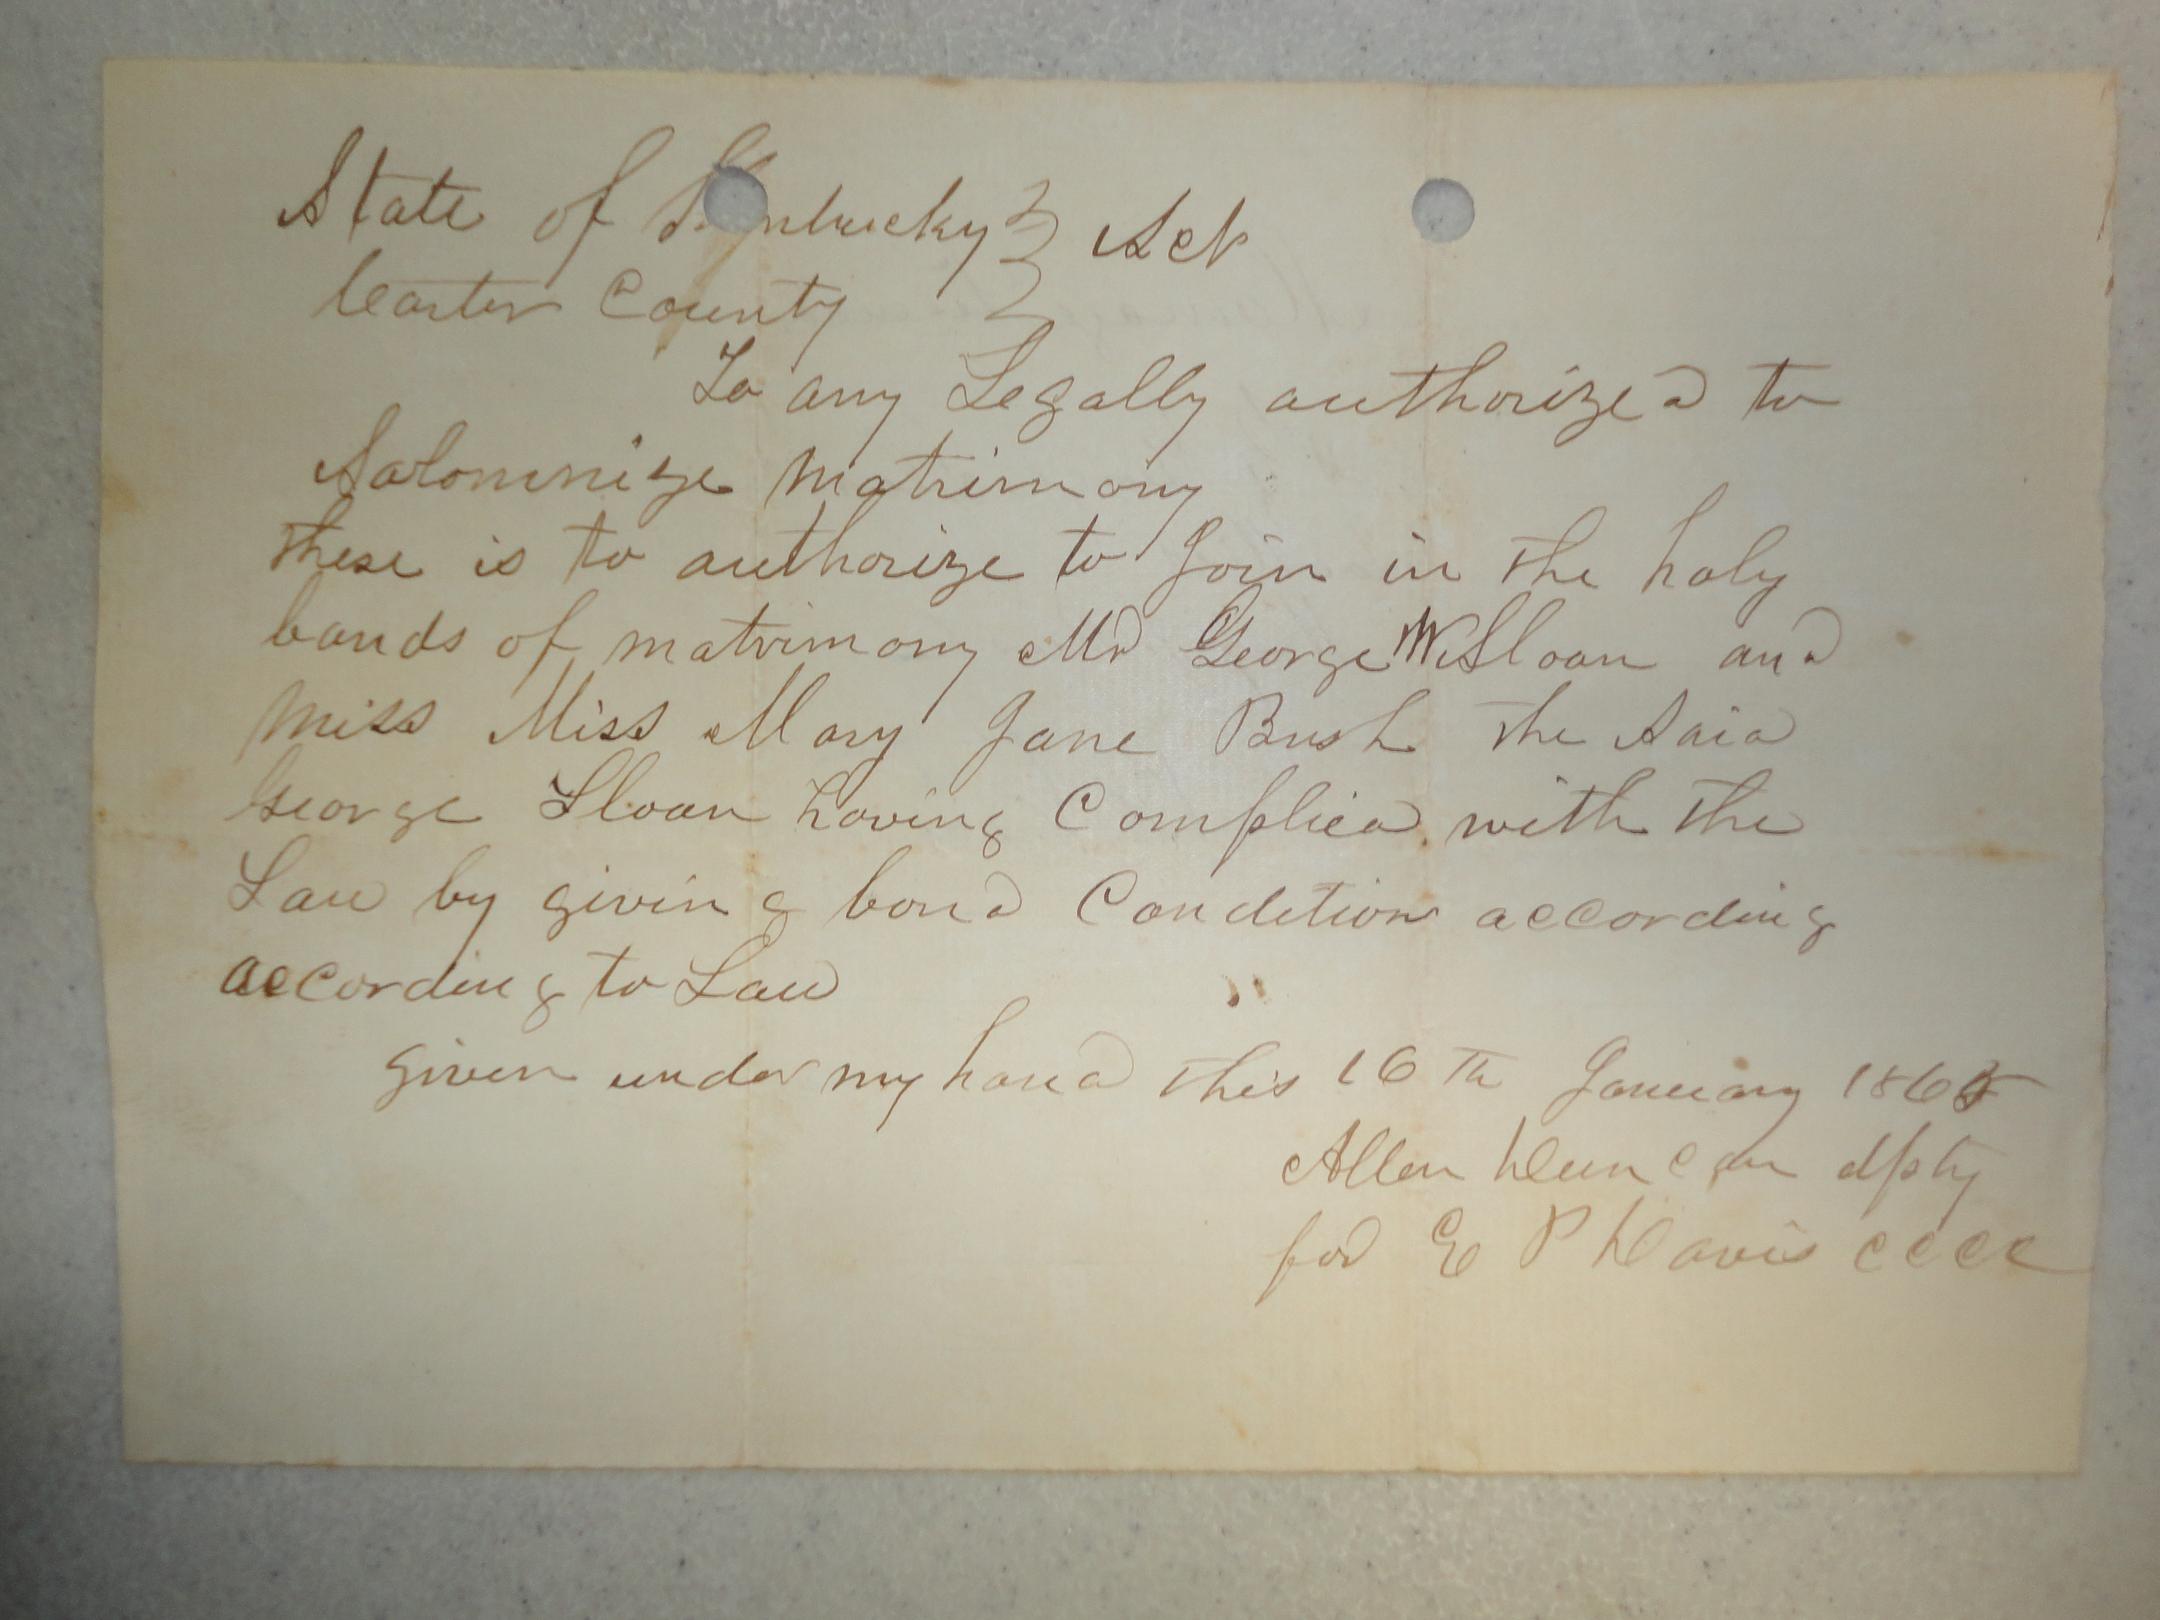 State of Kentucky } Sct
Carter County }
To any Legally authorized to
Solomnize matrimony
these is to authorize to Join in the holy
bands of matrimony Mr George W Sloan and
Miss Miss Mary Jane Bush the Said
George Sloan having Complied with the
Law by giving bond Condition according
according to Law
given under my hand this 16 Th January 1865
Allen Duncan dpty
for E P Davis CCCC